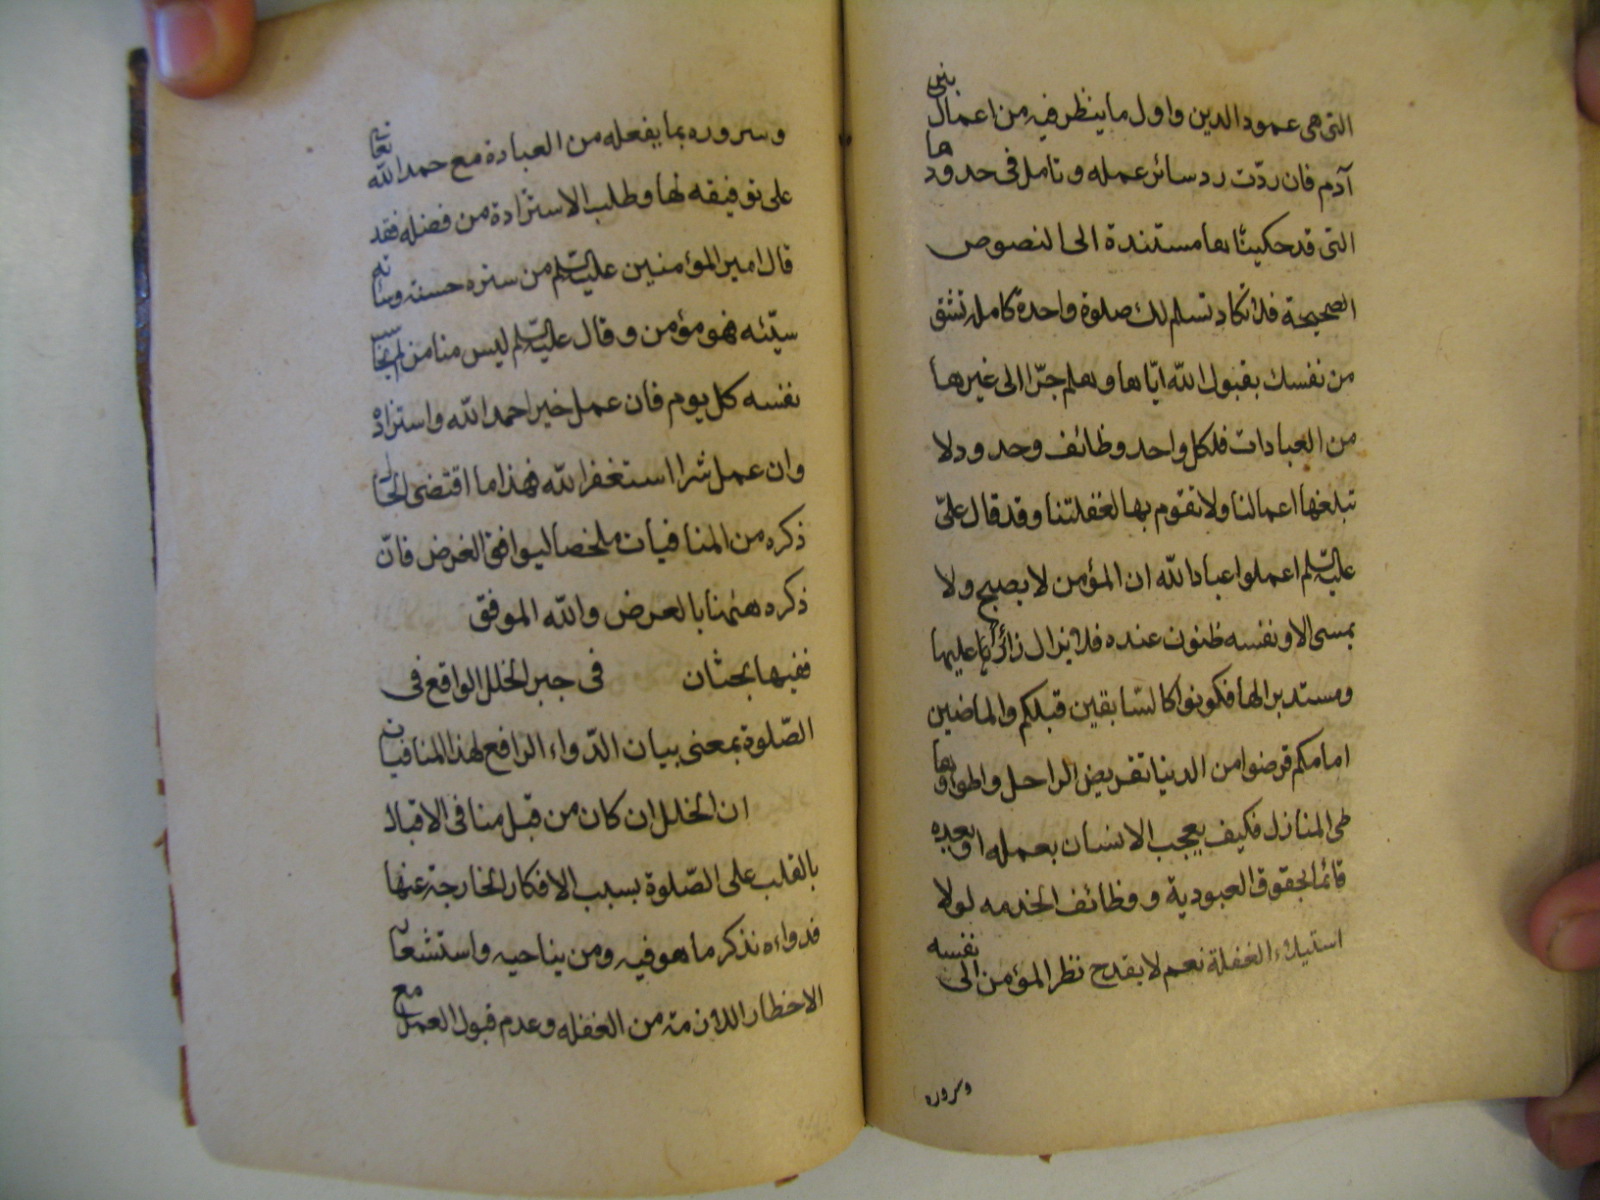 التى هى عمود الدين واول ما ينظر فيه من اعمال بنى
آدم فان ردّت رد سائر عمله وتامل فى حدودها
التى قد حكيناها مستندة الى النصوص
الصحيحة فلا تكاد تسلم لك صلوة واحدة كاملة تثق
من نفسك بقبول الله ايّاها وهلم جرّا الى غيرها
من العبادات فلكل واحد وظائف وحدود لا
تبلغها اعمالنا ولا تقوم بها لغفلتنا وقد قال علىّ
عليه السلم اعملوا عباد الله ان المؤمن لا يصبح ولا
يمسى الا ونفسه ظنون عنده فلا يزال زائرا عليها
ومستدبرالها فكونوا كالسّابقين قبلكم والماضين
امامكم قرضوا من الدينا تقريض الراحل واطووها
طى المنازل فكيف يعجب الانسان بعمله او يعده
قائما بحقوق العبودية ووظائف الخدمه لولا
استيلاء الغفلة نعم لا يقدح نظر المؤمن الى نفسه
وسروره
وسروره بما يفعله من العبادة مع حمد الله تعا
على توفيقه لها وطلب الاستزادة من فضله فقد
قال امير المؤمنين عليه السلم من سره حسنته وسائته
سيّئه فهو مؤمن وقال عليه السلم ليس منا من لم يحاسب
نفسه كل يوم فان عمل خيرا حمد الله واستزاده
وان عمل شرا استغفر الله فهذا ما اقتضى الحال
ذكره من المنافيات ملخصا ليوافق الغرض فانّ
ذكره هنهنا بالعرض والله الموفق
ففيها بحثان فى جبر الخلل الواقع فى
الصّلوة بمعنى بيان الدّواء الرافع لهذا المنافيات
ان الخلل ان كان من قبل منافى الاقبال
بالقلب على الصّلوة بسبب الافكار الخارجة عنها
فدواءه تذكر ما هو فيه ومن يناجيه واستشعار
الاخطار اللازمة من الغفله وعدم قبول العمل مع